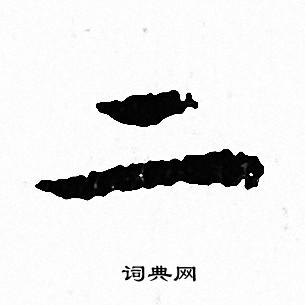 二
词典网